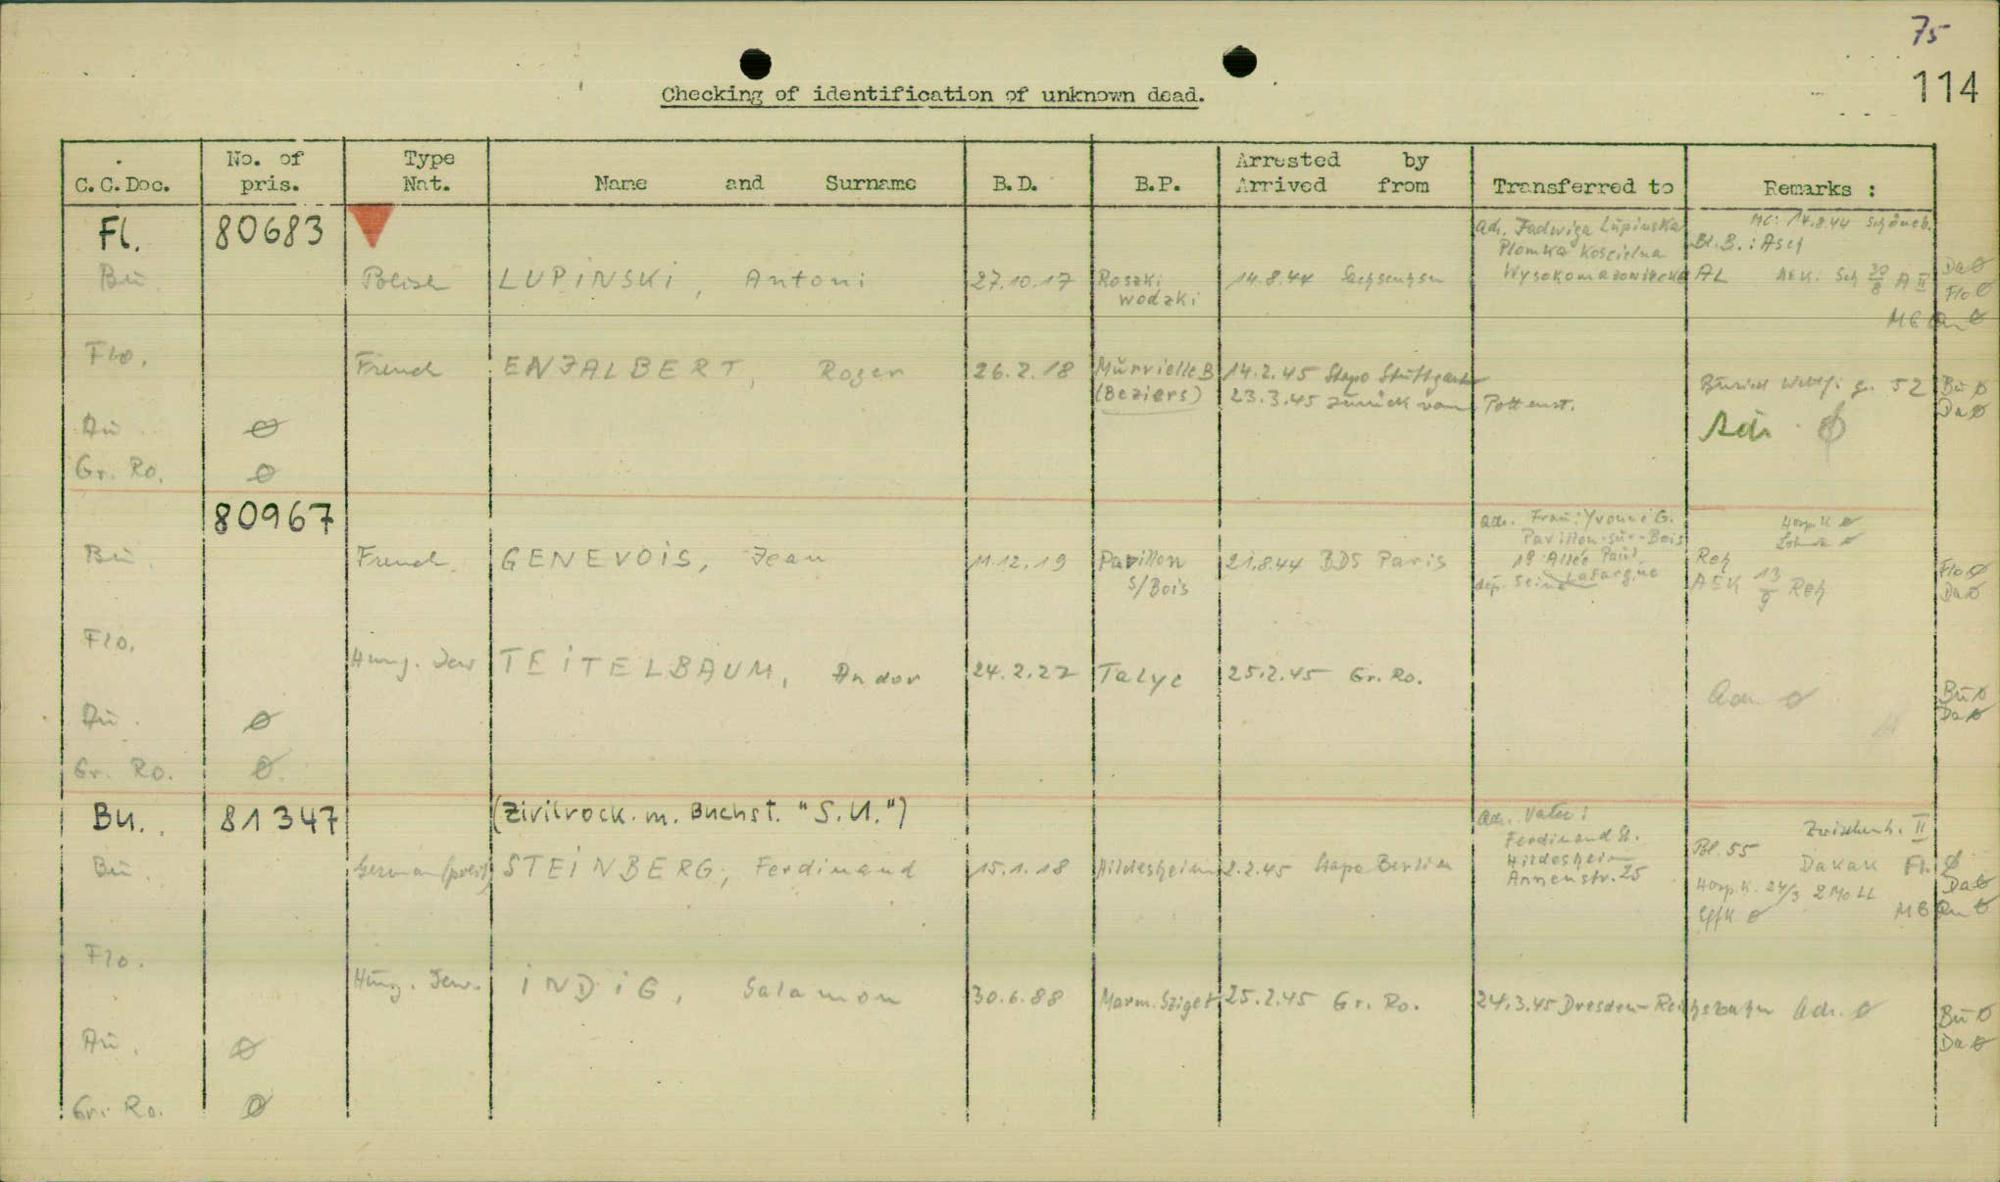 75
114
Checking of identification of unknown dead.
C.C.Doc.
No. of pris.
Type Nat.
Name and Surname
B.D.
B.P.
Arrested by
Arrived from
Transferred to
Remarks :
Fl. 80683
Bu. Polish LUPiNSKi, Antoni 27.10.17 Roszki wodzki 14.8.44 Sachsenhsn
Adr. Jadwiga Lupinska
Plomka Koscielna
Wysokomazowiecka
MC: 14.8.44
Bl. B.:
AL AEK. Sch 30/8 A II
Da ø
Flo ø
Flo. French ENJALBERT, Roger 26.2.18 Murvielle B (Beziers) 14.2.45 Stapo Stuttgart
23.3.45 zurück von Pottenst.
52 Bu ø
Da ø
Adr. ø
Au ø
Gr. Ro. ø
80967
Bu. French GENEVOiS, Jean 11.12.19 Pavillon s/Bois 21.8.44 BDS Paris
Adr. Frau: Yvonne G.
Pavillon-sur-Bois
19 Allée Paul
dep. Seine Lafargue
Hosp. K ø
Reh
AEK 13/9 Reh
Flo ø
Da ø
Flo. Hung. Jew TEiTELBAUM, Andor 24.2.27 Talye 25.2.45 Gr. Ro.
Adr. ø
Bu ø
Da ø
Au. ø
Gr. Ro. ø
Bu. 81347 (Zivilrock. m. Buchst. "S.U.")
Bu. German (polit) STEiNBERG, Ferdinand 15.1.18 Hildesheim 2.2.45 Stapo Berlin
Adr. Vater:
Ferdinand St.
Hildesheim
Annenstr. 25
Zwischenh. II
Bl. 55 Dakak Fl. ø
Da ø
Hosp. K. 24/3
Flo. Hung. Jew. iNDiG, Salamon 30.6.88 Marm. Sziget 25.2.45 Gr. Ro. 24.3.45 Dresden-Reichsbahn Adr. ø
Bu ø
Da ø
Au. ø
Gr. Ro. ø